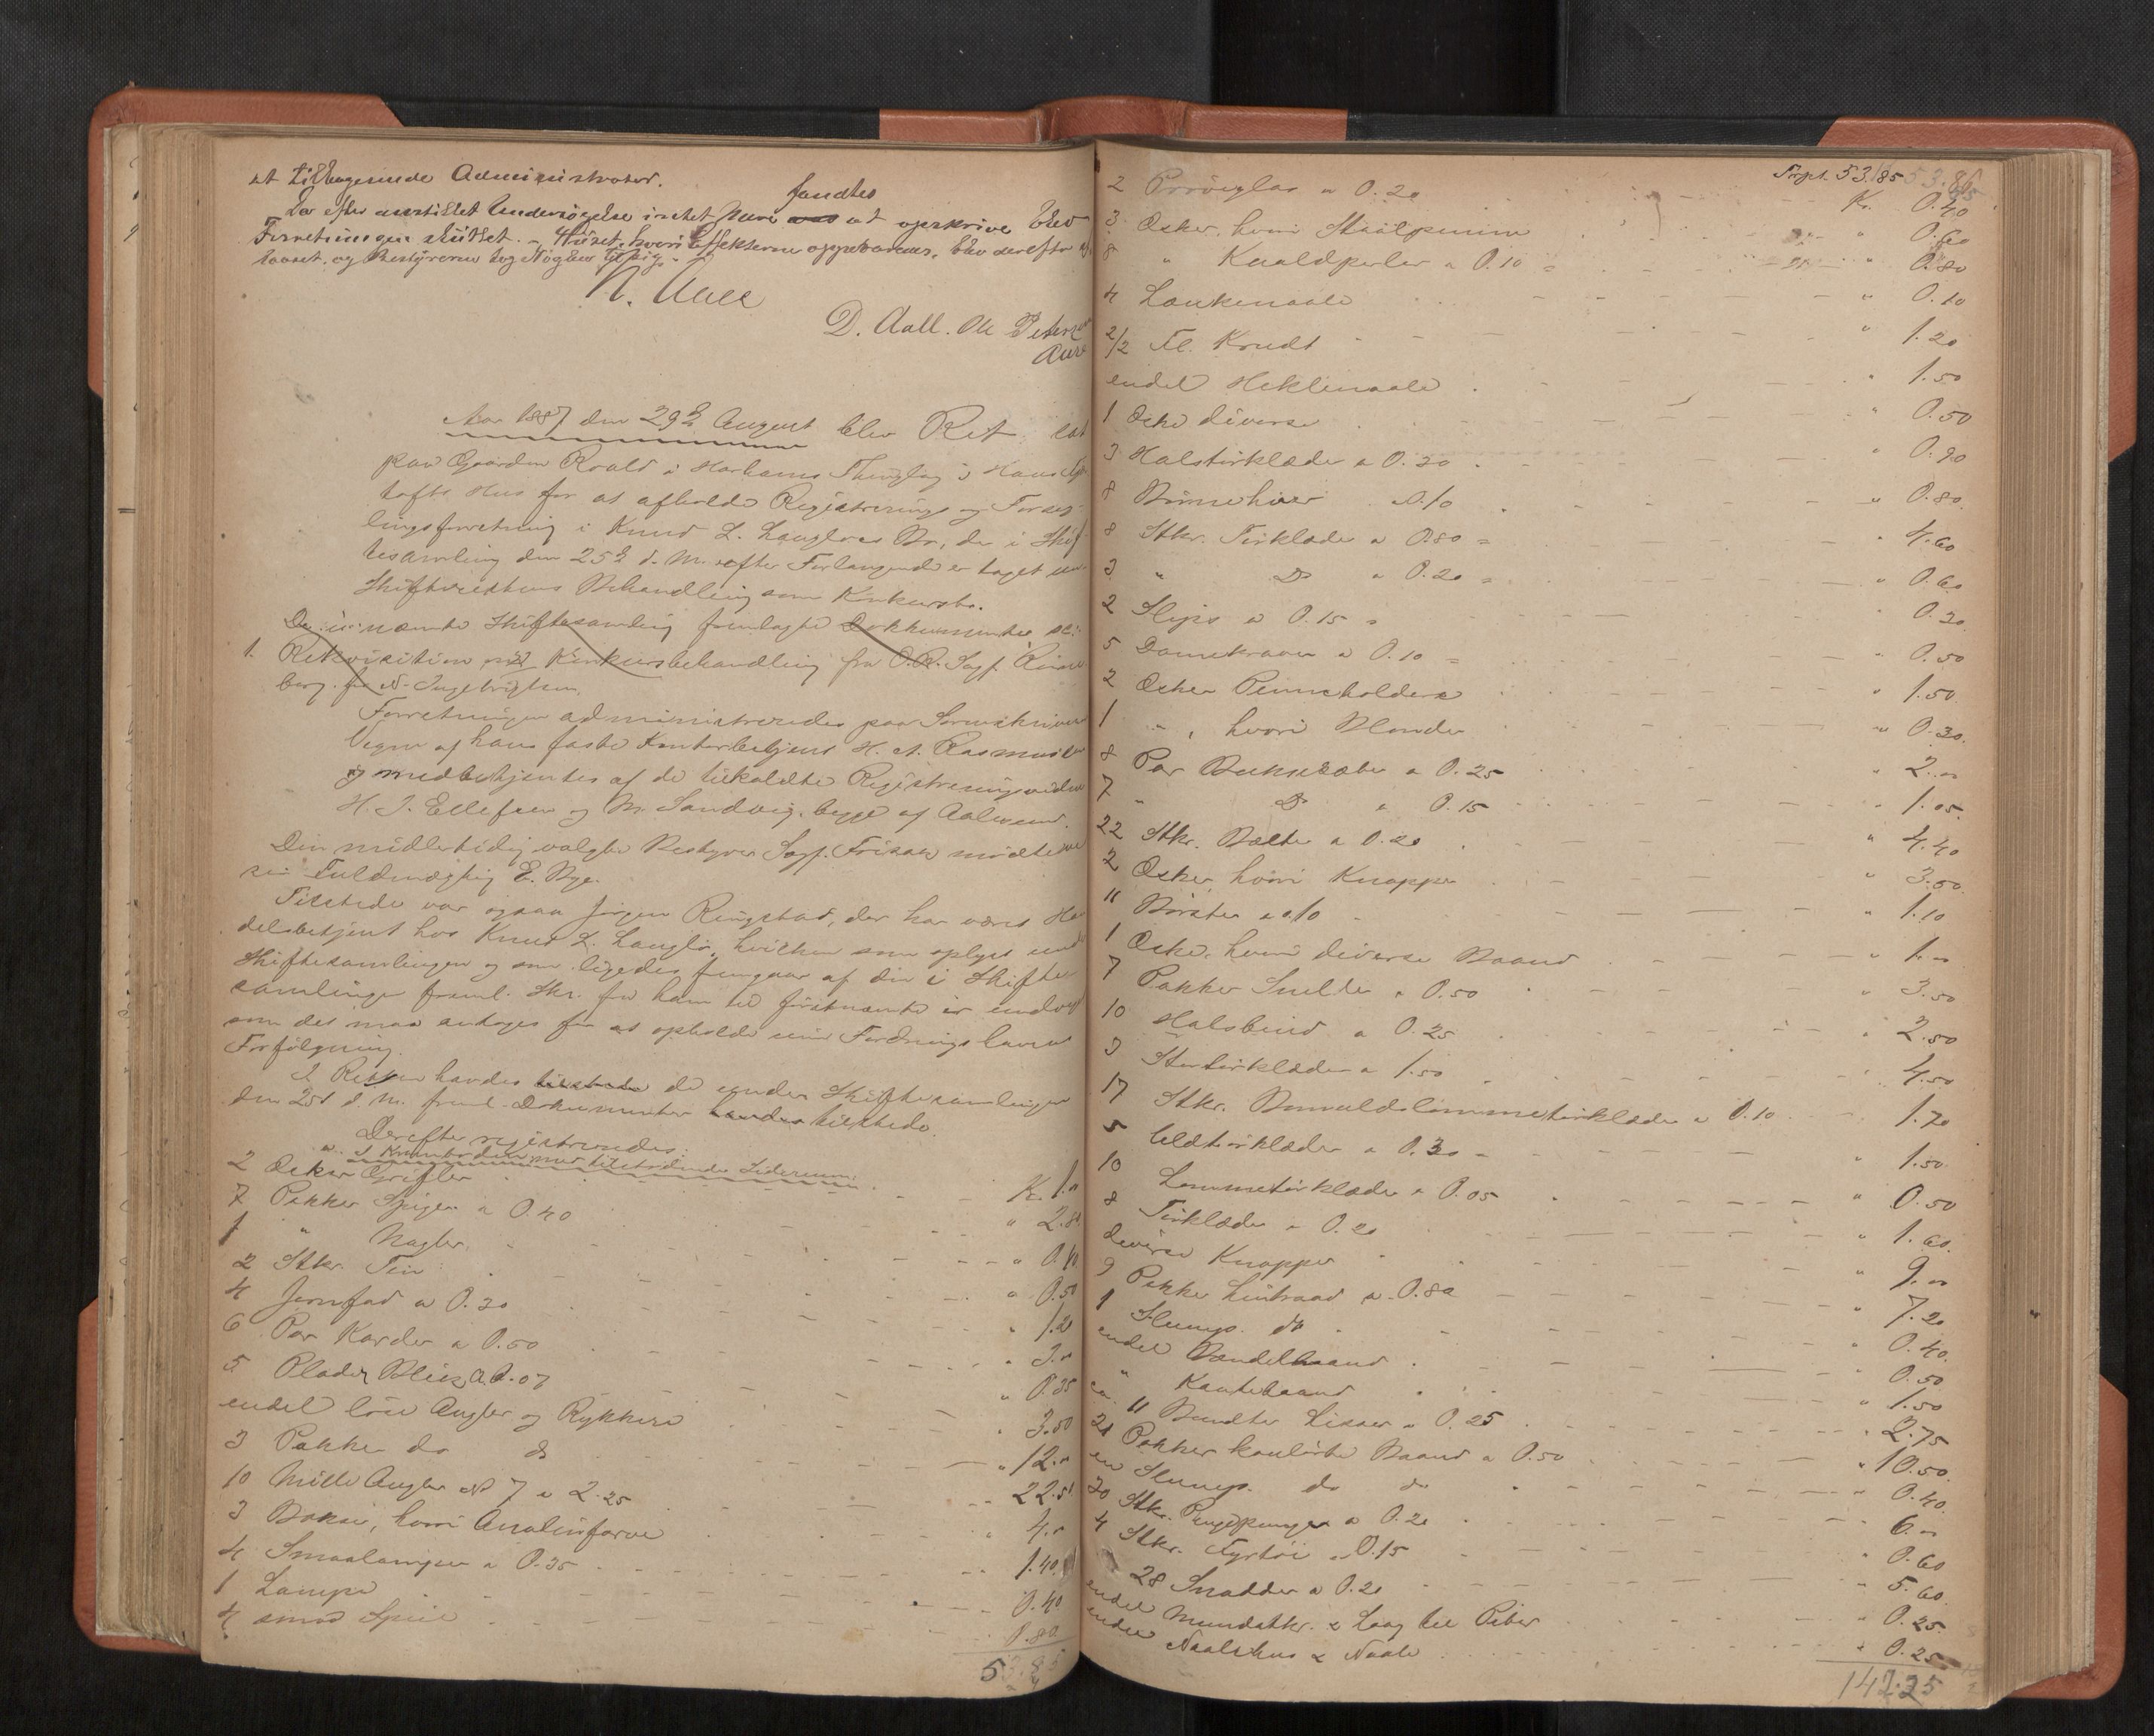 at tilbagegivende Administrator.
Da efter anstillet Undersøgelse intet Mere fandtes at opskrive blev
Forretningen sluttet. - Huset, hvori Effekterne opbevares, blev derefter af
laaset, og Bestyreren tog Nøglen til sig. -
N. Aure
D. Aall. Ole Peterssen
Aure
Aar 1887 den 29de August blev Ret sat
paa Gaarden Roald i Harhams Thinglag i Hans
tofts Hus for at afholde Registrerings og Forseg-
lingsforretning i Knud L. Langløes Bo, der i Skif-
tesamling den 25de d. M. efter Forlangende er taget un-
Skifterettens Behandling som Konkursbo.
De i nævnte Skiftesamling fremlagte Dokkumenter
1. Rekvisition om Konkursbehandling fra O.R. Sagf.
berg. for N. Ingebrigtsen.
Forretningen administreredes paa Sorenskriverens
Vegne af hans faste Kontorbetjent H. A. Rasmus
og medbetjentes af de tilkaldte Registreringsvidner
H. J. Ellefsen og M. Sandvig, begge af Aalesund.
Den midlertidig valgte Bestyrer Sagf. Frisak mødte ved
sin Fuldmægtig E. Bye.
Tilstede var ogsaa Jørgen Ringstad, der har været Han-
delsbetjent hos Knud L. Langlø, hvilken som oplyst under
Skiftesamlingen og som ligeledes fremgaar af den i Skifte-
samlingen freml. Skr. fra ham til førstnævnte er undveget
som det maa antages for at opholde sine Fordringshaveres
Forfølgning.
I Retten havdes de under Skiftesamlingen
den 25d d. M. freml. Dokumenter tilstede.
Derefter registreredes:
a. I Kramboden med tilstødende
2 Æsker Grifler Kr. 1."
7 Pakker Spiger a 0.40 " 2.80
1 " Nagler " 0.40
2 Stkr. Tin " 0.50
4 Jernfad a 0.30 " 1.20
6 Par Karder a 0.50 " 3."
5 Plader Blik a 0.07 " 0.35
endel løse Angler og Rykkere " 3.50
3 Pakker do do " 12."
10 Mille Angler No 7 a 2.25 " 22.50
3 Bokser, hvori Analinfarve " 4."
4 Smaalamper a 0.35 " 1.40
1 Lampe " 0.40
4 smaa Speil 0.80
53.85
Trspt. 53.85 53.85
2 Prøveglas a 0.20 Kr. 0.40
3 Æsker, hvori Staalpenne " 0.60
8 " Knaldperler a 0.10 " 0.80
4 Lænkenaale " 0.10
2/2 Fl. Krudt " 1.20
endel Heklenaale " 1.50
1 Æske diverse " 0.50
3 Halstørklæder a 0.30 " 0.90
8 Børnehuer a 0.10 " 0.80
8 Stkr. Tørklæder a 0.80 " 4.60
3 " Do a 0.20 " 0.60
2 Slips a 0.15 " 0.30
5 Damekraver a 0.10 " 0.50
2 Æsker Penneholdere " 1.50
1 " , hvori Blonder " 0.30
8 Par Buksesæler a 0.25 " 2."
7 " Do a 0.15 " 1.05
22 Stkr. Bælter a 0.20 " 4.40
2 Æsker, hvori Knapper " 3.50
11 Børster a 0.10 " 1.10
1 Æske, hvori diverse Baand " 1."
7 Pakker Snelder a 0.50 " 3.50
10 Halsbind a 0.25 " 2.50
3 Stortørklæder a 1.50 " 4.50
17 Stkr. Bomuldslommetørklæder a 0.10 1.70
5 Uldtørklæder a 0.30 " 1.50
10 Lommetørklæder a 0.05 " 0.50
8 Tørklæder a 0.20 " 1.60
diverse Knapper " 9."
9 Pakker Lintraad a 0.80 " 7.20
1 Slump do " 0.40
endel Bændelbaand 0.50
" Kantebaand " 1.50
ca. 11 Bundter Lisser a 0.25 " 2.75
21 Pakker koulørte Baand a 0.50 " 10.50
en Slump do do " 0.40
30 Stkr. Pengepunger a 0.20 6."
4 Stkr. Fyrtøi a 0.15 " 0.60
28 Snadder a 0.20 " 5.60
endel Mundstkr. & Laag til Piber " 0.25
endel Naalehus & Naale " 0.25
142.25